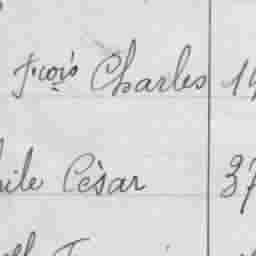 Fcois Charles 19
ile Cèsar 37